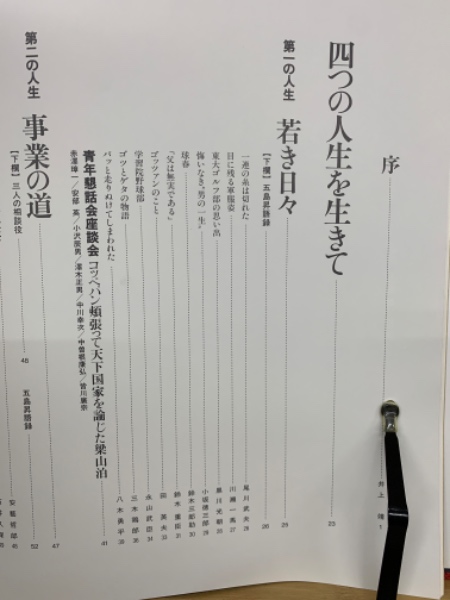 序
井上 靖 1
四つの人生を生きて 23
第一の人生 若き日々 29
【下欄】五島昇語録 28
一連の糸は切れた 尾川武夫 28
目に残る軍服姿 川瀬一馬 27
東大ゴルフ部の思い出
悔いなき〝男の一生〟 小坂徳三郎
球春 鈴木三郎助
「父は無実である」
ゴッツァンのこと
学習院野球部 永山武臣
ゴッツとゲタの物語 三木鶏郎
パッと走りぬけてしまわれた 八木勇平
青年懇話会座談会 コッペパン頬張って天下国家を論じた梁山泊 41
赤澤璋一/安部 英/小沢辰男/澤木正男/中川幸次/中曽根康弘/皆川廣宗
第二の人生 事業の道 47
【下欄】三人の相談役 48
五島昇語録 52